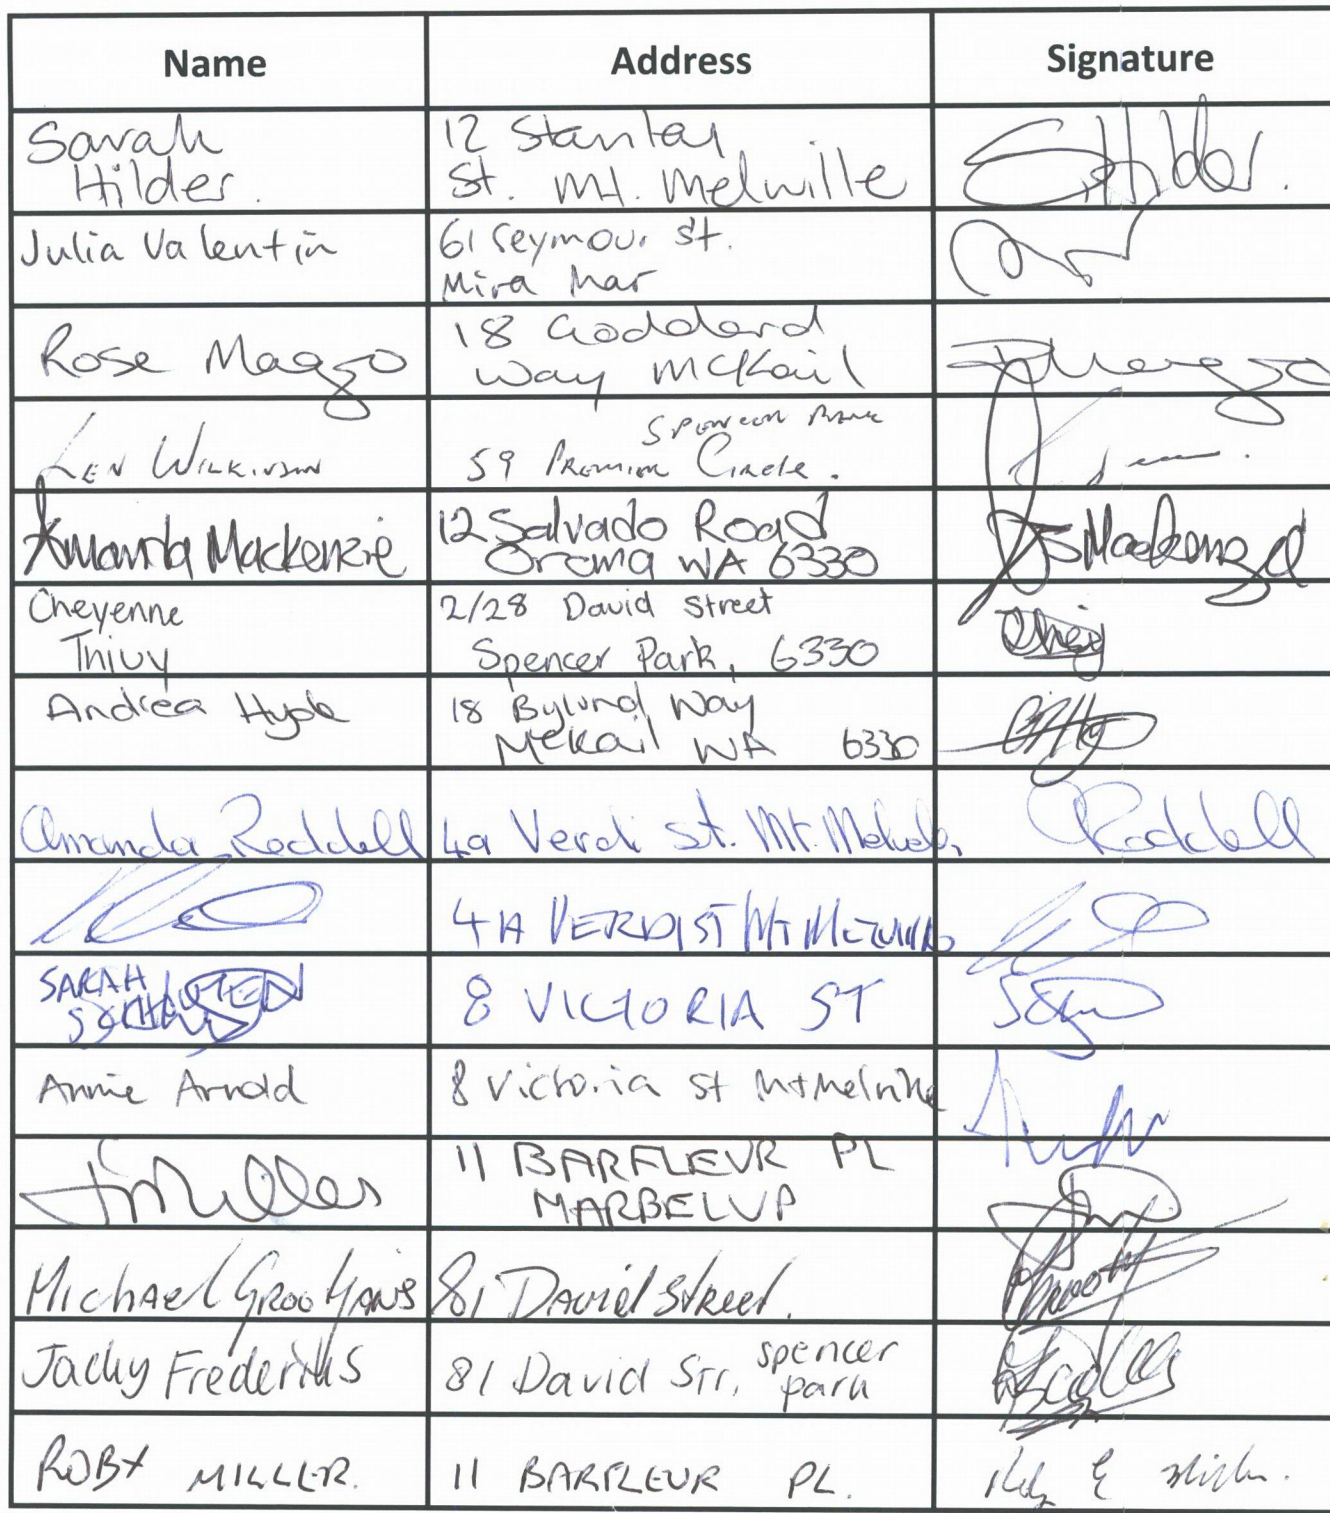 Name Address Signature
Sarah
Hilder.
12 Stanley
St. Mt. Melville
SHilder.
Julia Valentin
61 Seymour St.
Mira Mar
Rose Maggo
18 Goddard
Way McKail
Len Wilkinson
Spencer Park
59 Premier Circle.
Amanda Mackenzie
12 Salvado Road
Orana WA 6330
Mackenzie
Cheyenne
2/28 David Street
Spencer Park, 6330
Andrea Hyde
18 Bylund Way
McKail WA 6330
Amanda Roddell
4a Verdi St. Mt. Melville
Roddell
4A VERDI ST Mt MELVILLE
SARAH
8 VICTORIA ST
Annie Arnold
8 Victoria St Mt Melville
11 BARFLEUR PL
MARBELUP
Michael Grootjans
81 David Street.
Jacky Frederiks
81 David Str, spencer
park
MILLER.
11 BARFLEUR PL.